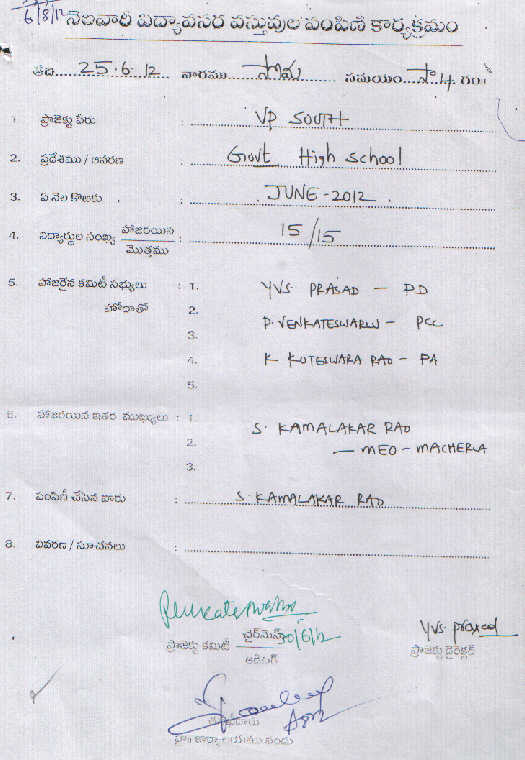 6/8/12
నెలవారీ విద్యావసర వస్తువుల పంపిణి కార్యక్రమం
తేది....25.6.12 వారము....సోమ.... సమయం....సా.4 గం॥
1. ప్రాజెక్టు పేరు : VP SOUTH
2. ప్రదేశము / ఆవరణ : Govt High school
3. ఏ నెల కొఱకు : JUNE-2012
4. విద్యార్థుల సంఖ్య హాజరయిన / మొత్తము : 15/15
5. హాజరైన కమిటీ సభ్యులు : 1. YVS. PRASAD - PD
హోదాతో 2.
P. VENKATESWARLU - PCC
3.
4. K KOTESWARA RAO - PA
5.
6. హాజరయిన ఇతర ముఖ్యులు : 1.
S. KAMALAKAR RAO
2.
- MEO - MACHERLA
3.
7. పంపిణీ చేసిన వారు : S. KAMALAKAR RAO
8. వివరణ / సూచనలు :
ప్రాజెక్టు కమిటీ చైర్మెన్ 30/6/12
YVS. prasad
ప్రాజెక్టు డైరెక్టర్